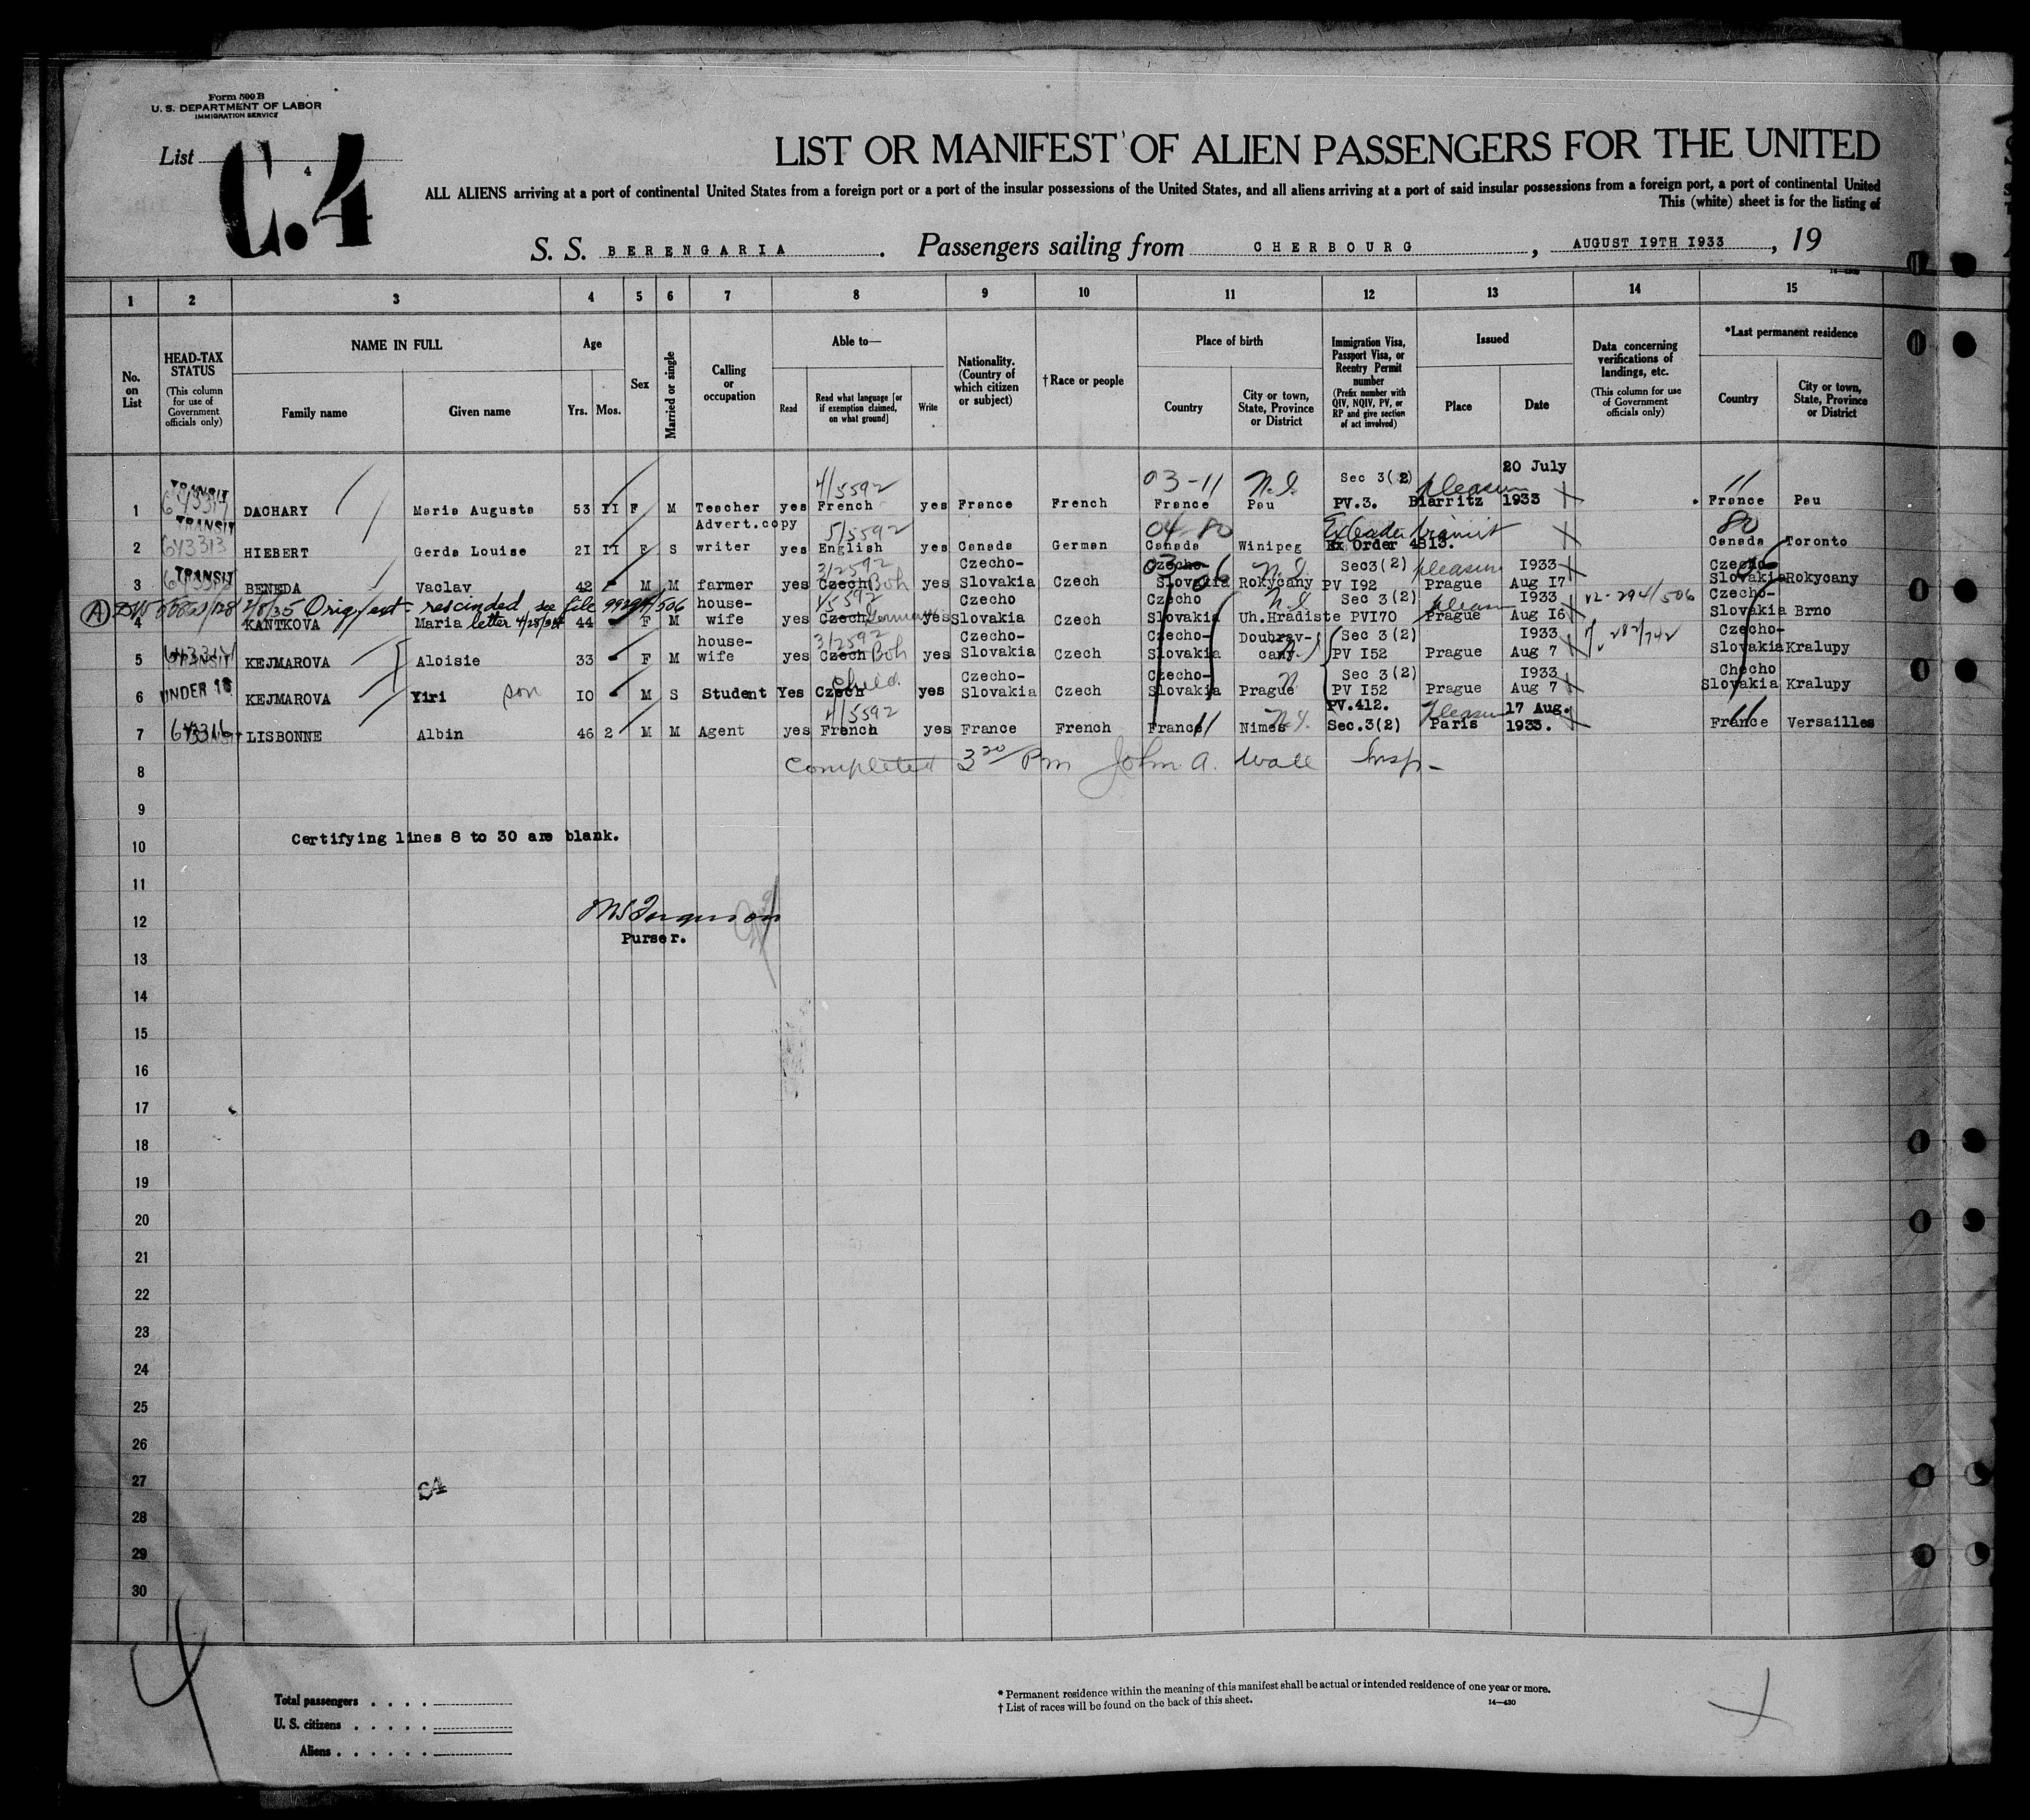 Form 500 B
U. S. DEPARTMENT OF LABOR
IMMIGRATION SERVICE
List 4
C.4
LIST OR MANIFEST OF ALIEN PASSENGERS FOR THE UNITED
ALL ALIENS arriving at a port of continental United States from a foreign port or a port of the insular possessions of the United States, and all aliens arriving at a port of said insular possessions from a foreign port, a port of continental United
This (white) sheet is for the listing of
S. S. BERENGARIA. Passengers sailing from CHERBOURG, AUGUST I9TH I933, 19
1 2 3 4 5 6 7 8 9 10 11 12 13 14 15
No. on List
HEAD-TAX STATUS (This column for use of Government officials only)
NAME IN FULL
Family name
Given name
Age
Yrs. Mos.
Sex
Married or single
Calling or occupation
Able to—
Read
Read what language [or if exemption claimed, on what ground]
Write
Nationality. (Country of which citizen or subject)
† Race or people
Place of birth
Country
City or town, State, Province or District
Immigration Visa, Passport Visa, or Reentry Permit number (Prefix number with QIV, NQIV, PV, or RP and give section of act involved)
Issued
Place
Date
Data concerning verifications of landings, etc. (This column for use of Government officials only)
*Last permanent residence
Country
City or town, State, Province or District
TRANSIT 4/5592 03-11 N.I. Sec 3(2) pleasure 20 July 11
1 DACHARY Marie Augusta 53 II F M Teacher yes French yes France French France Pau PV.3. Biarritz 1933 France Pau
TRANSIT 643313 Advert.copy 5/5592 04 80 transit 80
2 HIEBERT Gerda Louise 2I II F S writer yes English yes Canada German Canada Winipeg Ex Order 4813. Canada Toronto
TRANSIT 3/2592 Czecho- Czecho- 06 N.I. Sec3(2) pleasure I933 Czecho-
3 BENEDA Vaclav 42 - M M farmer yes Czech Boh yes Slovakia Czech Slovakia Rokycany PV I92 Prague Aug I7 Slovakia Rokycany
(A) 2/8/35 Orig. ext - rescinded see file 99294/506 house- 4/5592 Czecho Czecho N.I. Sec 3(2) pleasure I933 V2-294/506 Czecho-
4 KANTKOVA Maria letter 4/28/34 44 - F M wife yes Czech German yes Slovakia Czech Slovakia Uh.Hradiste PVI70 Prague Aug I6 Slovakia Brno
TRANSIT house- 3/2592 Czecho- Czecho- Doubrav- Sec 3(2) I933 282/742 Czecho-
5 KEJMAROVA Aloisie 33 - F M wife yes Czech Boh yes Slovakia Czech Slovakia cany. PV I52 Prague Aug 7 Slovakia Kralupy
UNDER 16 Child Czecho- Czecho- N Sec 3(2) I933 Checho
6 KEJMAROVA Yiri son IO - M S Student Yes Czech yes Slovakia Czech Slovakia Prague PV I52 Prague Aug 7 Slovakia Kralupy
643316 4/5592 N.I. PV.412. Pleasure 17 Aug. 11
7 LISBONNE Albin 46 2 M M Agent yes French yes France French France 11 Nimes Sec.3(2) Paris 1933. France Versailles
8 Completed 3 20 Pm John A. Wall Insp-
9
10 Certifying lines 8 to 30 are blank.
11
12 Ferguson
Purser.
13
14
15
16
17
18
19
20
21
22
23
24
25
26
27 C4
28
29
30
Total passengers . . . .
U. S. citizens . . . . .
Aliens . . . . . .
* Permanent residence within the meaning of this manifest shall be actual or intended residence of one year or more.
† List of races will be found on the back of this sheet. 14—430